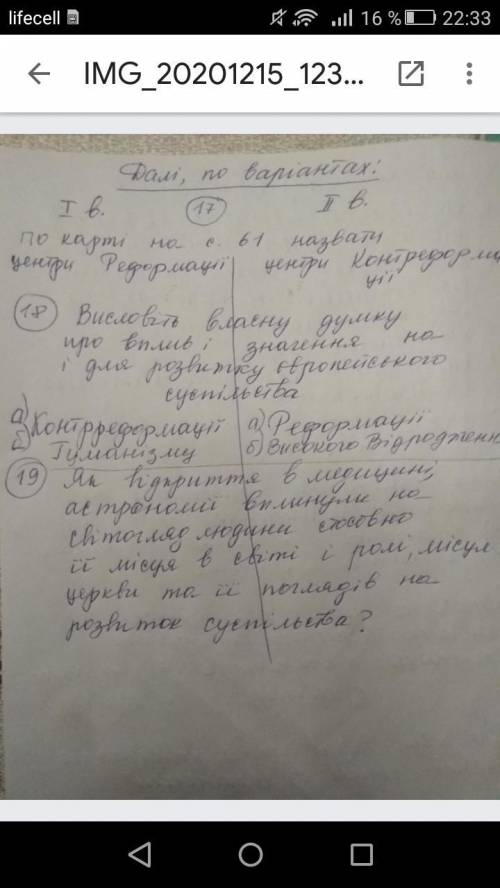 lifecell 16 % 22:33
IMG_20201215_123...
Далі, по варіантах:
I в. 17 II в.
По карті на с. 61 назвати
центри Реформації центри Контреформа
ції
18 Висловіть власну думку
про вплив і значення на
і для розвитку європейського
суспільства
а) Контрреформації а) Реформації
б) Гуманізму б) Високого Відродженн
19 Як відкриття в медицині,
астрономії вплинули на
світогляд людини стосовно
її місця в світі і ролі, місця
церкви та її поглядів на
розвиток суспільства?